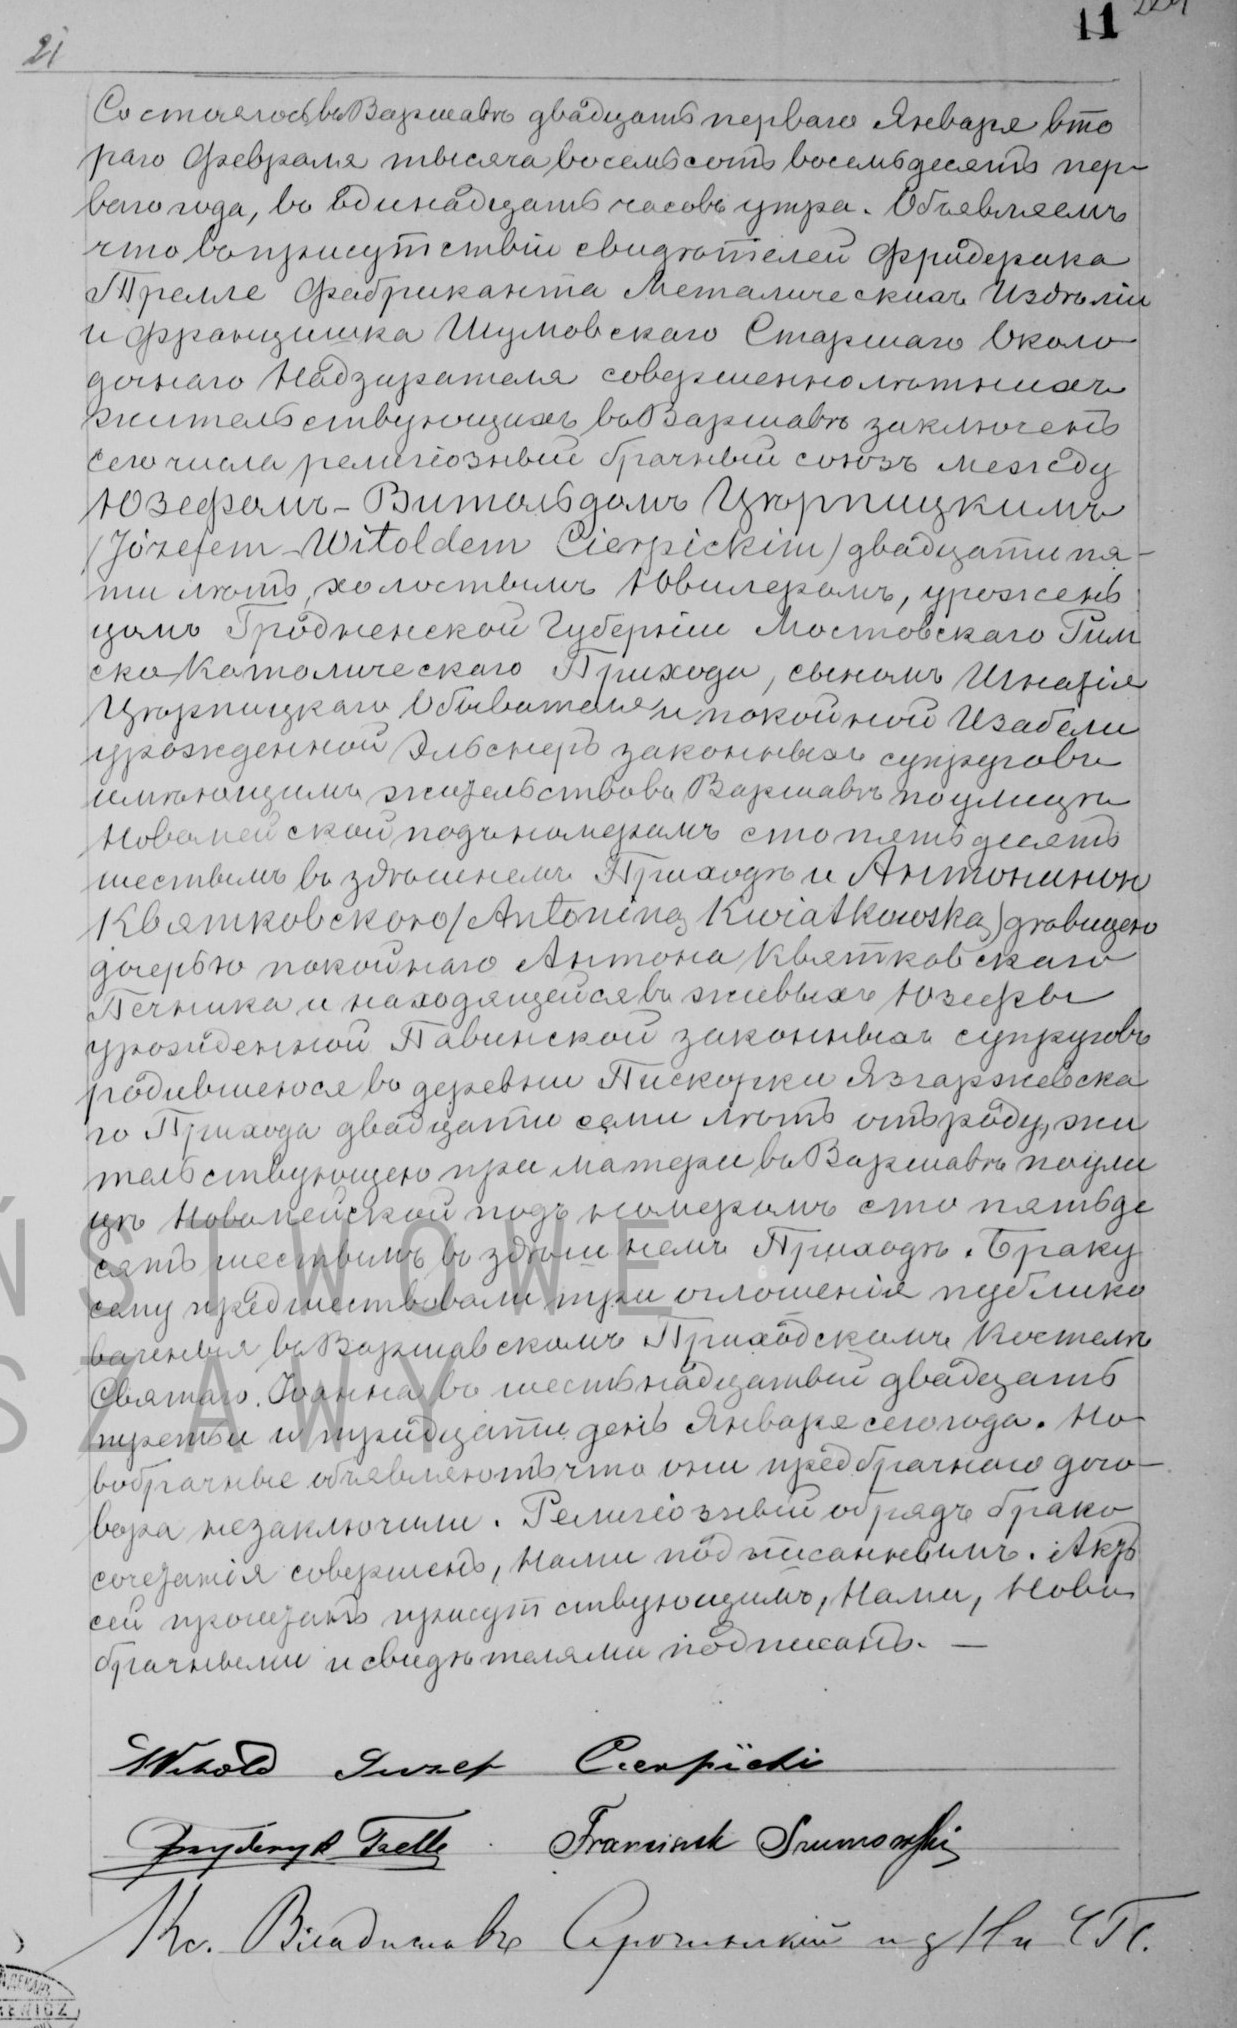 21
11
Состоялось въ Варшавѣ двадцать перваго Января вто
раго Февраля тысяча восемьсотъ восемьдесятъ пер-
ваго года, въ одинадцать часовъ утра. Объявляемъ
что въ присутствіи свидѣтелей Фридерика
Трелле Фабриканта Металическихъ Издѣліи
и Францишка Шумовскаго Старшаго Около
дочнаго Надзирателя совершеннолѣтнихъ
жительствующихъ въ Варшавѣ заключенъ
сего числа религіозный брачный союзъ между
Юзефомъ-Витольдомъ Цѣрпицкимъ
(Józefem-Witoldem Cierpickim) двадцати пя-
ти лѣтъ, холостымъ Ювилеромъ, урожень
цомъ Гродненской Губерніи Мостовскаго Рим
ско Католическаго Прихода, сыномъ Игнатія
Цѣрпицкаго Обывателя и покойной Изабели
урожденной Эльснеръ законныхъ супруговъ
имѣющимъ жительство въ Варшавѣ по улицѣ
Новомейской подъ номеромъ сто пятьдесятъ
шестымъ въ здѣшнемъ Приходѣ и Антониною
Квятковскою (Antoniną Kwiatkowską) дѣвицею
дочерью покойнаго Антона Квятковскаго
Печника и находящейся въ живыхъ Юзефы
урожденной Павинской законныхъ супруговъ
родившеюся въ деревни Пискорки Язгаржевска
го Прихода двадцати семи лѣтъ отъ роду, жи
тельствующею при матери въ Варшавѣ по ули
цѣ Новомейской подъ номеромъ сто пятьде
сятъ шестымъ въ здѣшнемъ Приходѣ. Браку
сему предшествовали три оглошенія публико
ванныя въ Варшавскомъ Приходскомъ Костелѣ
Святаго Іоанна въ шестьнадцатый двадцать
третьи и тридцати день Января сего года. Но-
вобрачные объявляютъ что они предбрачного дого-
вора незаключили. Религіозный обрядъ брако
сочетанія совершенъ, Нами подписаннымъ. Актъ
сей прочетанъ присутствующимъ, Нами, Ново
брачными и свидѣтелями подписанъ. —
Witold Juzef Cierpicki
Fryderyk Trelle Franciszek Szumowski
Кс. Владиславъ
ŃSTWOWE
SZAWY